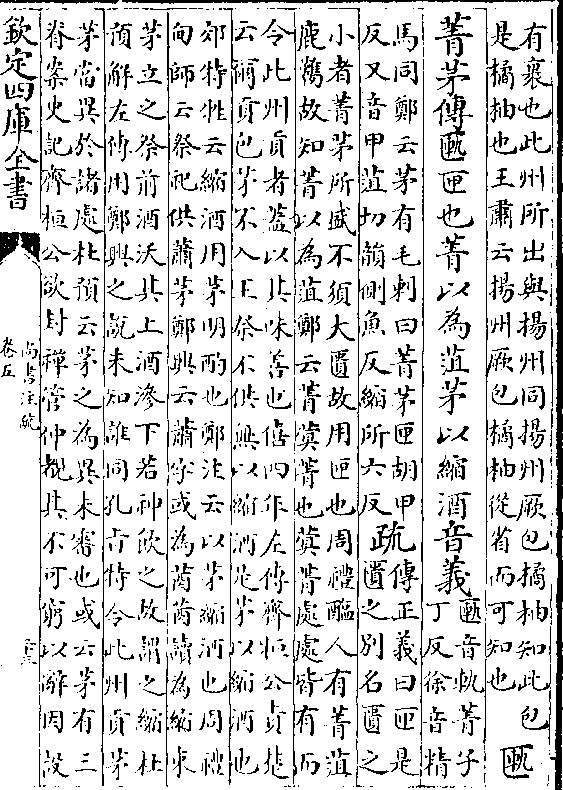 有裹也此州所出與揚州同揚州厥包橘柚知此包
是橘柚也王肅云揚州厥包橘柚從省而可知也
匭
菁茅傳匭匣也菁以為菹茅以縮酒音義
匭音軌菁子
丁反徐音精
馬同鄭云茅有毛刺曰菁茅匣胡甲
反又音甲菹切韻側魚反縮所六反
疏
傳正義曰匣是
匱之別名匱之
小者菁茅所盛不須大匱故用匣也周禮醢人有菁菹
鹿臡故知菁以為菹鄭云菁蓂菁也蓂菁處處皆有而
令此州貢者蓋以其味善也僖四年左傳齊桓公責楚
云爾貢包茅不入王祭不供無以縮酒是茅以縮酒也
郊特牲云縮酒用茅明酌也鄭注云以茅縮酒也周禮
甸師云祭祀供蕭茅鄭興云蕭字或為莤莤讀為縮束
茅立之祭前酒沃其上酒滲下若神飲之故謂之縮杜
預解左傳用鄭興之說未知誰同孔旨特令此州貢茅
茅當異於諸處杜預云茅之為異未審也或云茅有三
脊案史記齊桓公欲封禪管仲覩其不可窮以辭因設
欽定四庫全書
尚書注疏
卷五